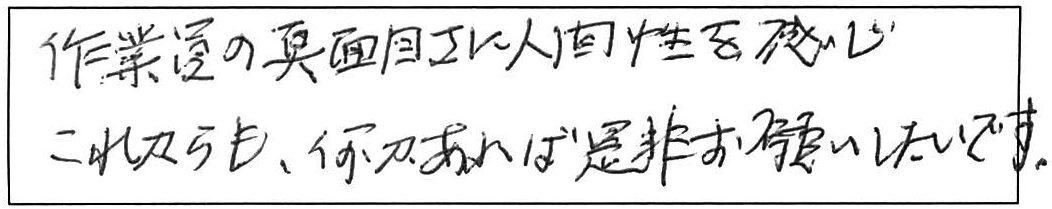 作業員の真面目さに人間性を感じ
これからも、何かあれば是非お願いしたいです。